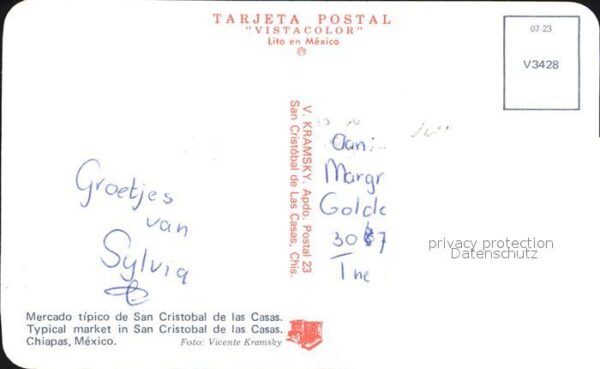 TARJETA POSTAL
"VISTACOLOR"
Lito en México
©
07-23
V3428
V. KRAMSKY. Apdo. Postal 23
San Cristóbal de Las Casas, Chis.
Groetjes
van
Sylvia
Dani
Margr
Golde
The
privacy protection
Datenschutz
Mercado típico de San Cristobal de las Casas.
Typical market in San Cristobal de las Casas.
Chiapas, México.
Foto: Vicente Kramsky